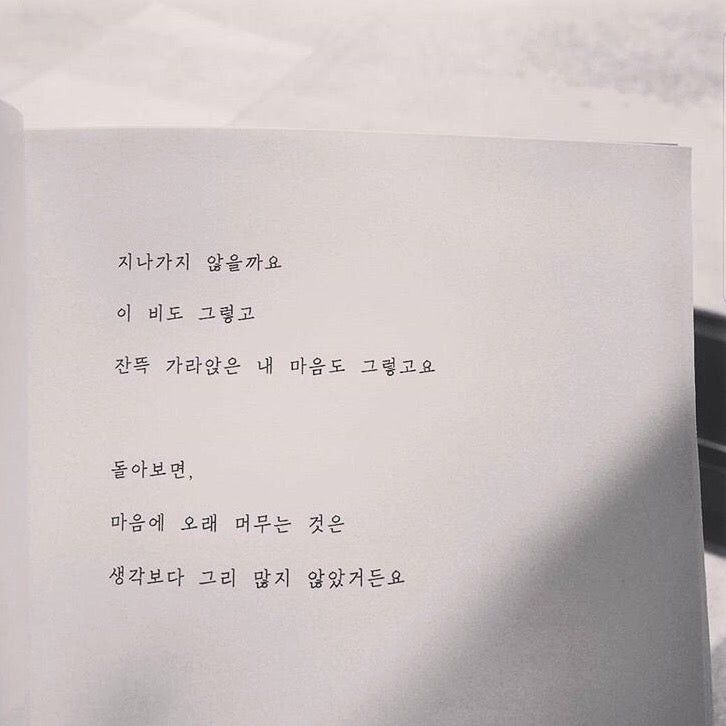 지나가지 않을까요
이 비도 그렇고
잔뜩 가라앉은 내 마음도 그렇고요
돌아보면,
마음에 오래 머무는 것은
생각보다 그리 많지 않았거든요